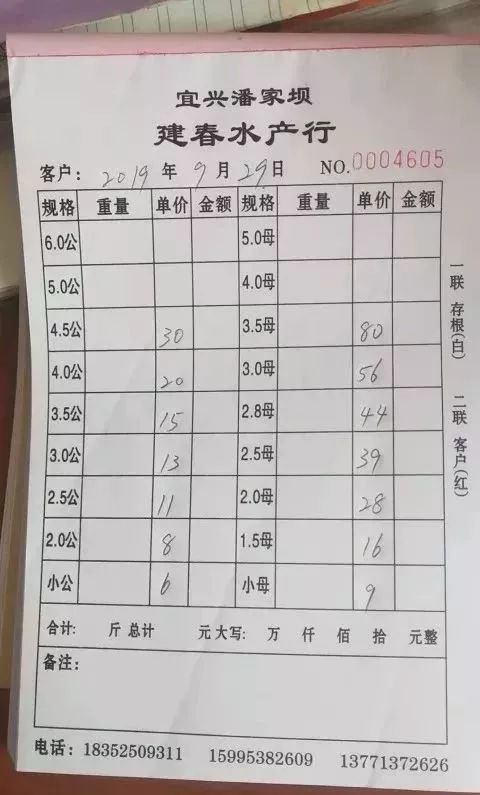 宜兴潘家坝
建春水产行
客户: 2019年9月29日 NO.0004605
规格 重量 单价 金额 规格 重量 单价 金额
6.0公 5.0母
5.0公 4.0母
4.5公 30 3.5母 80
4.0公 20 3.0母 56
3.5公 15 2.8母 44
3.0公 13 2.5母 39
2.5公 11 2.0母 28
2.0公 8 1.5母 16
小公 6 小母 9
合计: 斤 总计 元 大写: 万 仟 佰 拾 元整
备注:
电话: 18352509311 15995382609 13771372626
一联 存根(白) 二联 客户(红)